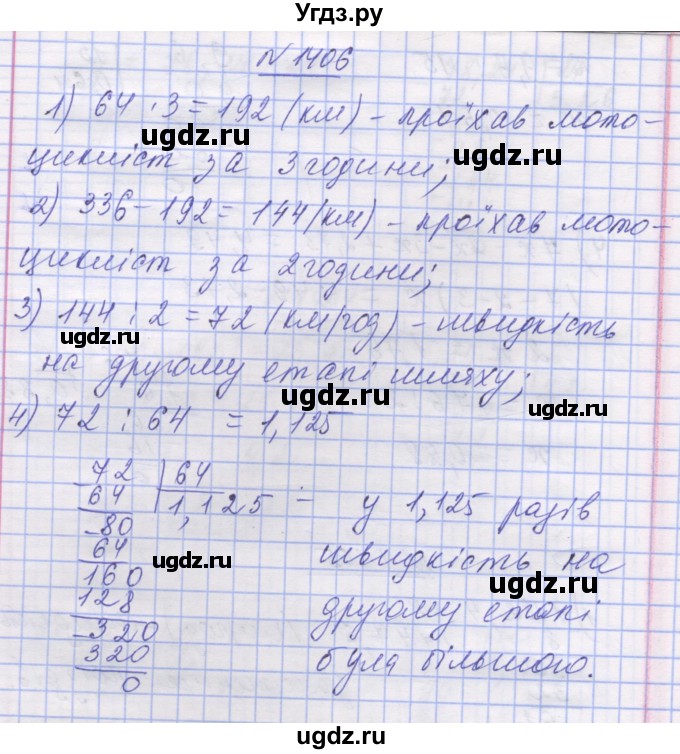 Угдз.ру
№ 1406
1) 64 · 3 = 192 (км) – проїхав мото-
ugdz.ru
цикліст за 3 години;
ugdz.ru
2) 336 – 192 = 144 (км) – проїхав мото-
ugdz.ru ugdz.ru
цикліст за 2 години;
3) 144 : 2 = 72 (км/год) – швидкість
ugdz.ru ugdz.ru
на другому етапі шляху;
ugdz.ru
4) 72 : 64 = 1,125
ugdz.ru
72 | 64
64 1,125 – у 1,125 разів
80
ugdz.ru ugdz.ru
64 швидкість на
160
ugdz.ru
128 другому етапі
320
320 була більшою.
0
ugdz.ru ugdz.ru